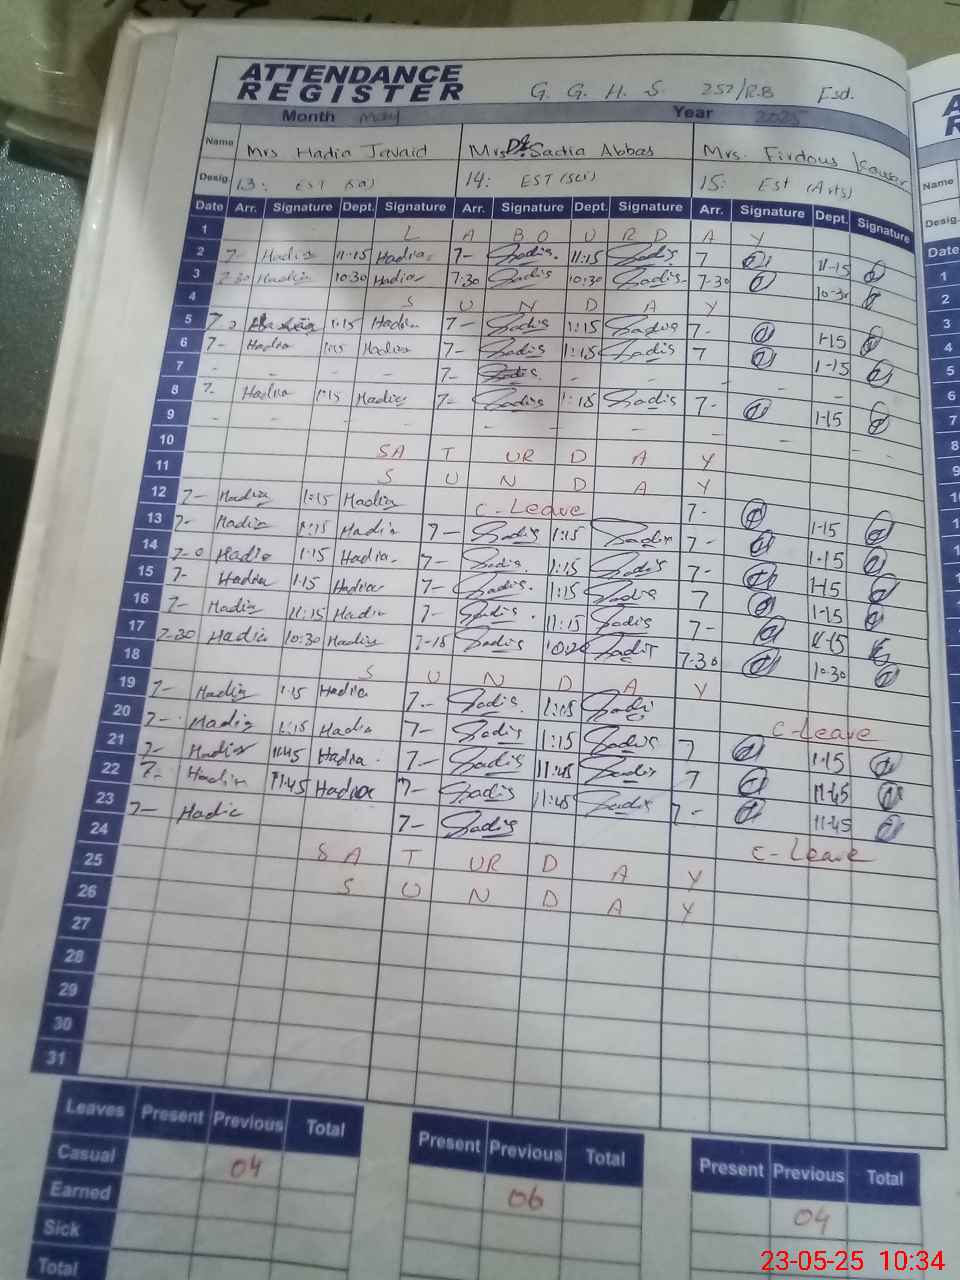 ATTENDANCE
REGISTER
G. G. H. S. 257/R.B Fsd.
Month May Year 2025
Name Mrs Hadia Javaid Mrs Dr. Sadia Abbas Mrs. Firdous Kausar
Desig. 13: EST (Sci) 14: EST (Sci) 15: Est (Arts)
Date Arr. Signature Dept. Signature Arr. Signature Dept. Signature Arr. Signature Dept. Signature
1 L A B O U R D A Y
2 7- Hadia 11:15 Hadia 7- Sadia 11:15 Sadia 7 11-15
3 7:30 Hadia 10:30 Hadia 7:30 Sadia 10:30 Sadia 7-30 10-30
4 S U N D A Y
5 7- Hadia 1:15 Hadia 7- Sadia 1:15 Sadia 7- 1-15
6 7- Hadia 1:15 Hadia 7- Sadia 1:15 Sadia 7 1-15
7 - - - - 7- Sadia - - - - -
8 7- Hadia 1:15 Hadia 7- Sadia 1:15 Sadia 7- 1-15
9 - - - - - - - - - - - -
10 SA T UR D A Y
11 S U N D A Y
12 7- Hadia 1:15 Hadia C-Leave 7- 1-15
13 7- Hadia 1:15 Hadia 7- Sadia 1:15 Sadia 7- 1-15
14 7-0 Hadia 1:15 Hadia 7- Sadia 1:15 Sadia 7- 1-15
15 7- Hadia 1:15 Hadia 7- Sadia 1:15 Sadia 7 1-15
16 7- Hadia 11:15 Hadia 7- Sadia 11:15 Sadia 7- 11-15
17 7-30 Hadia 10:30 Hadia 7-15 Sadia Sadia 7-30 10-30
18 S U N D A Y
19 7- Hadia 1:15 Hadia 7- Sadia 1:15 Sadia C-Leave
20 7- Hadia 1:15 Hadia 7- Sadia 1:15 Sadia 7 1-15
21 7- Hadia 11:45 Hadia 7- Sadia 11:45 Sadia 7 11-45
22 7- Hadia 11:45 Hadia 7- Sadia 11:45 Sadia 7- 11-45
23 7- Hadia 7- Sadia C-Leave
24 SA T UR D A Y
25 S U N D A Y
26
27
28
29
30
31
Leaves Present Previous Total Present Previous Total Present Previous Total
Casual 04 06 04
Earned
Sick
Total
A
R
Name
Desig.
Date
1
2
3
4
5
6
7
8
9
23-05-25 10:34